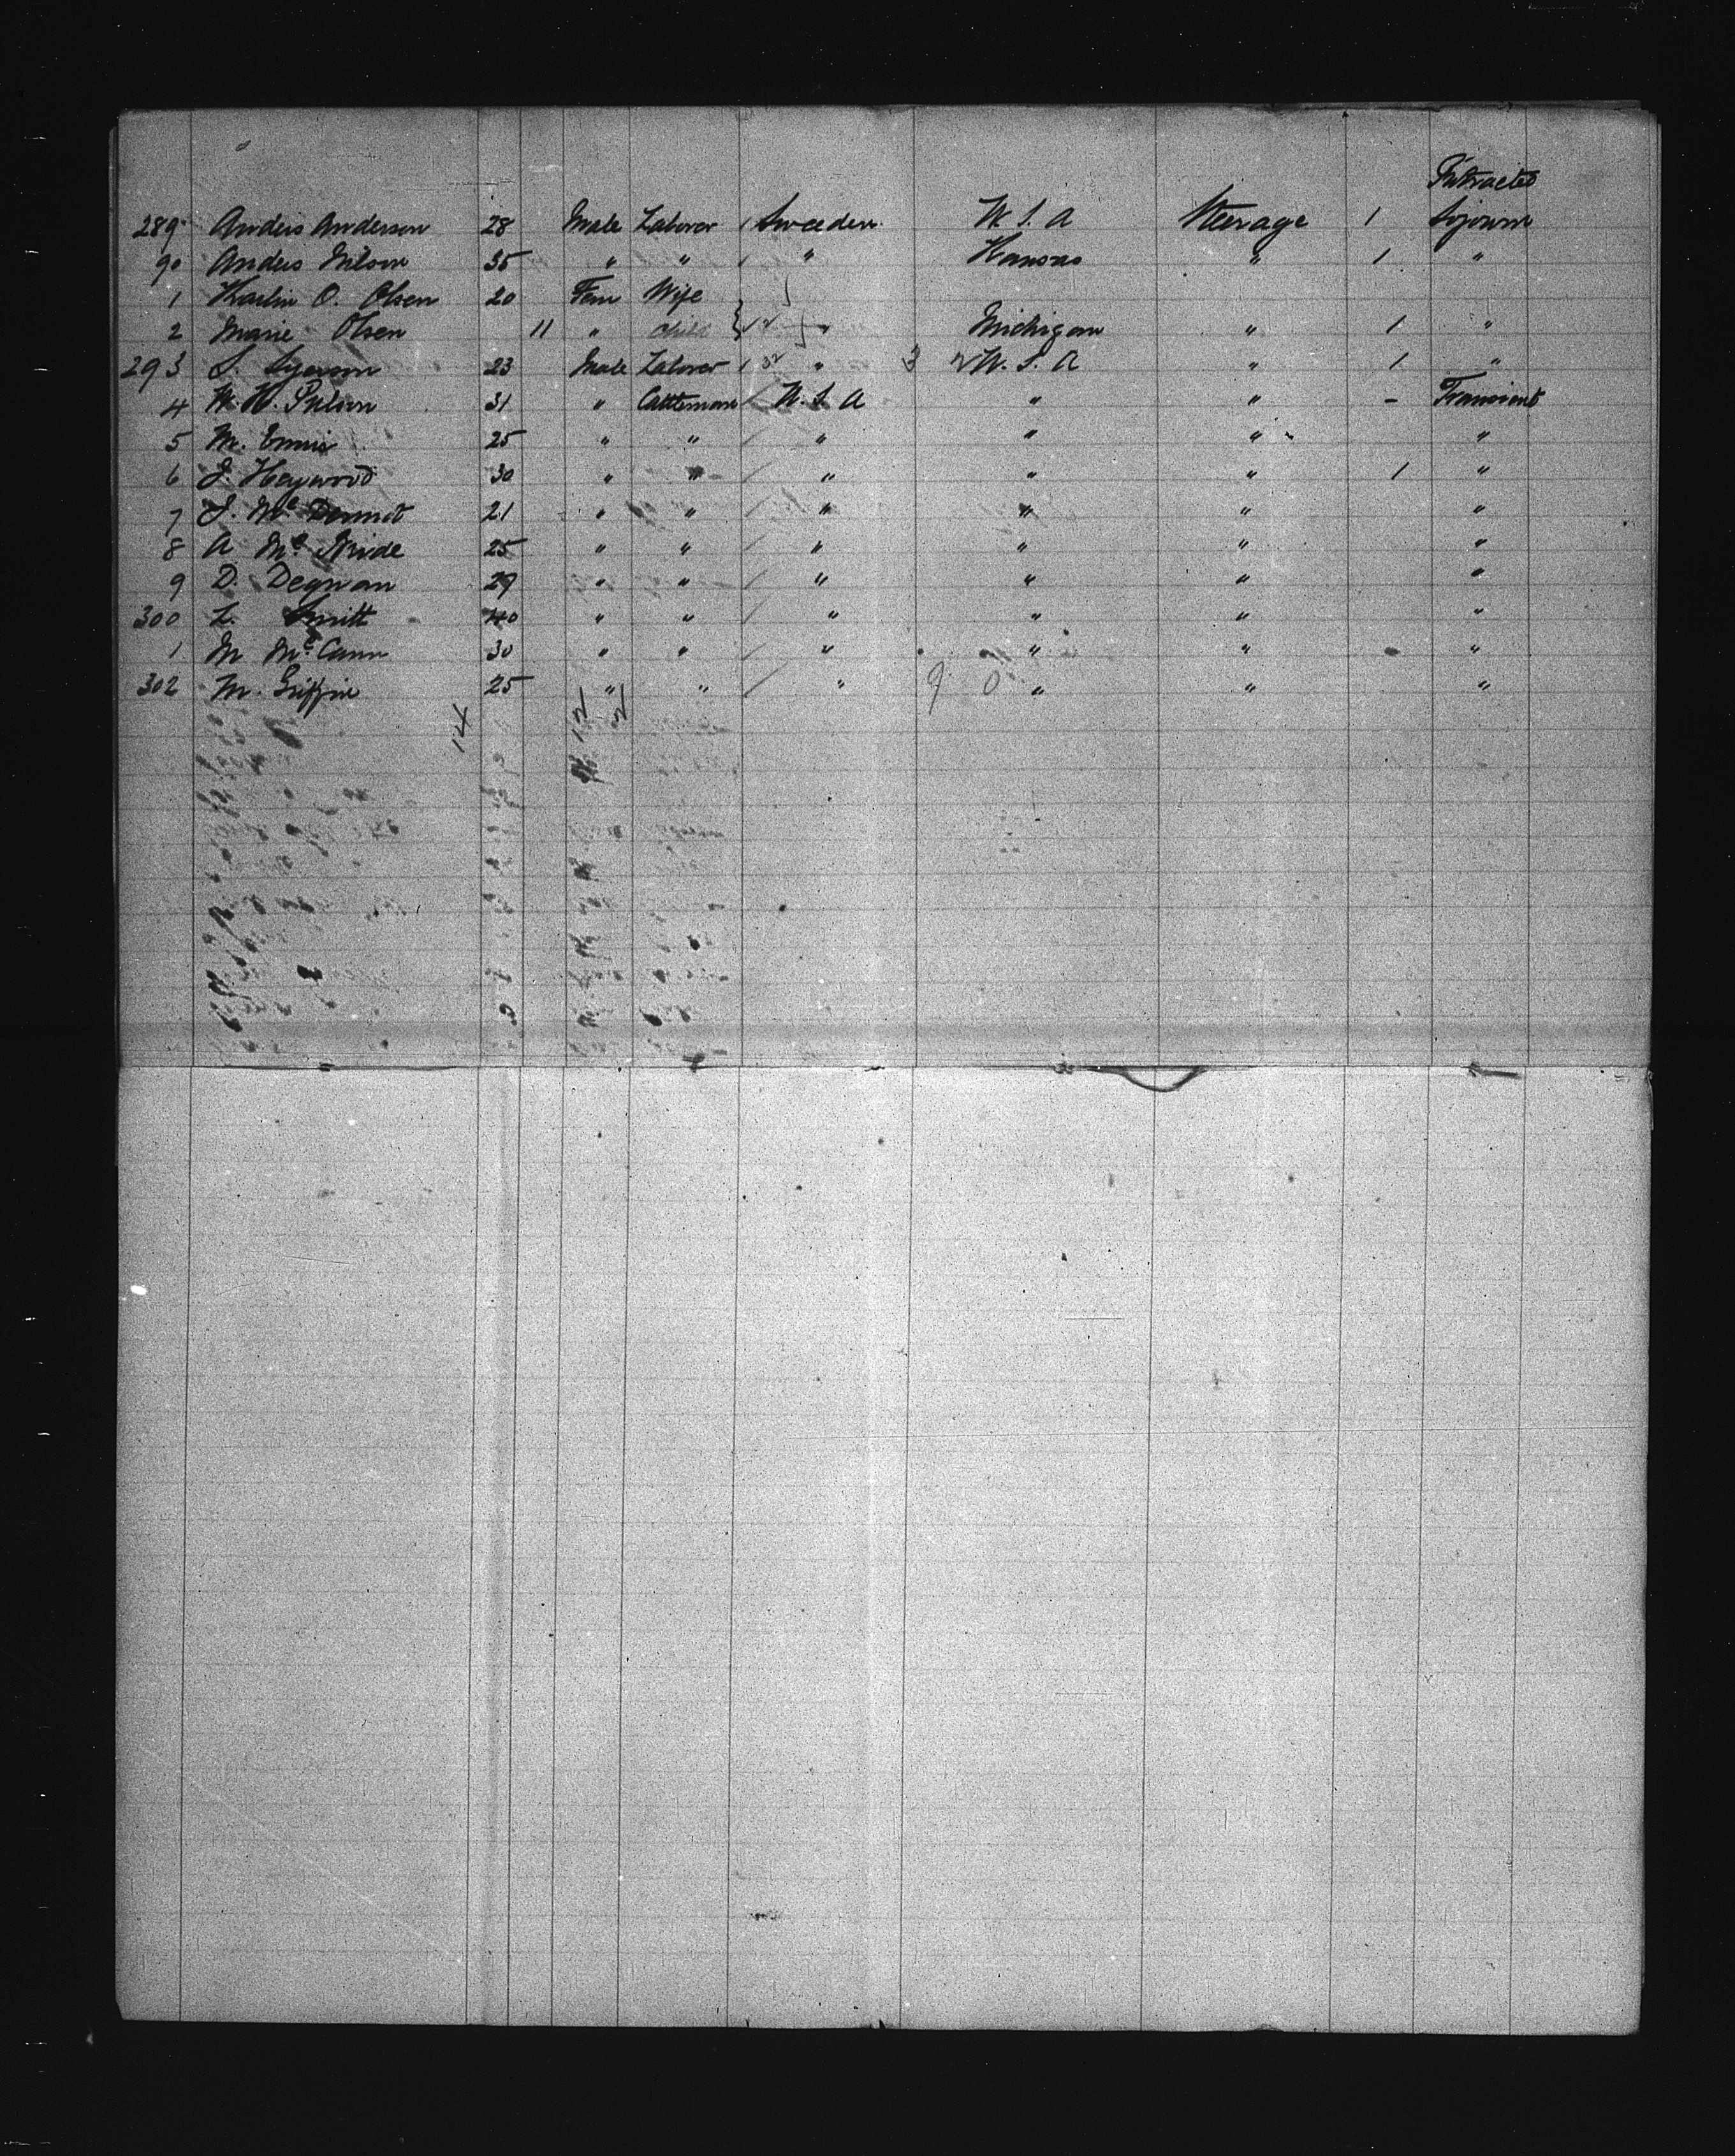 Protracted
289 Anders Anderson 28 Male Laborer / Sweeden U. S. A Steerage 1 Sojourn
90 Anders Nilson 35 " " / " Kansas " 1 "
1 Karlin O. Olsen 20 Fem Wife
2 Marie Olsen 11 " Child " Michigan " 1 "
293 23 Male Laborer / " U. S. A " 1 "
4 W. H. 31 " Cattleman / U. S. A " " - Transient
5 M. Ennis 25 " " / " " " "
6 J. Heywood 30 " " / " " " 1 "
7 J. McDermot 21 " " / " " " "
8 A Mc 25 " " / " " " "
9 D. Degnan 29 " " / " " " "
300 L. Smith 40 " " / " " " "
1 M McCann 30 " " / " " " "
302 M. Griffin 25 " " / " 9 0 " " "
14 12 2